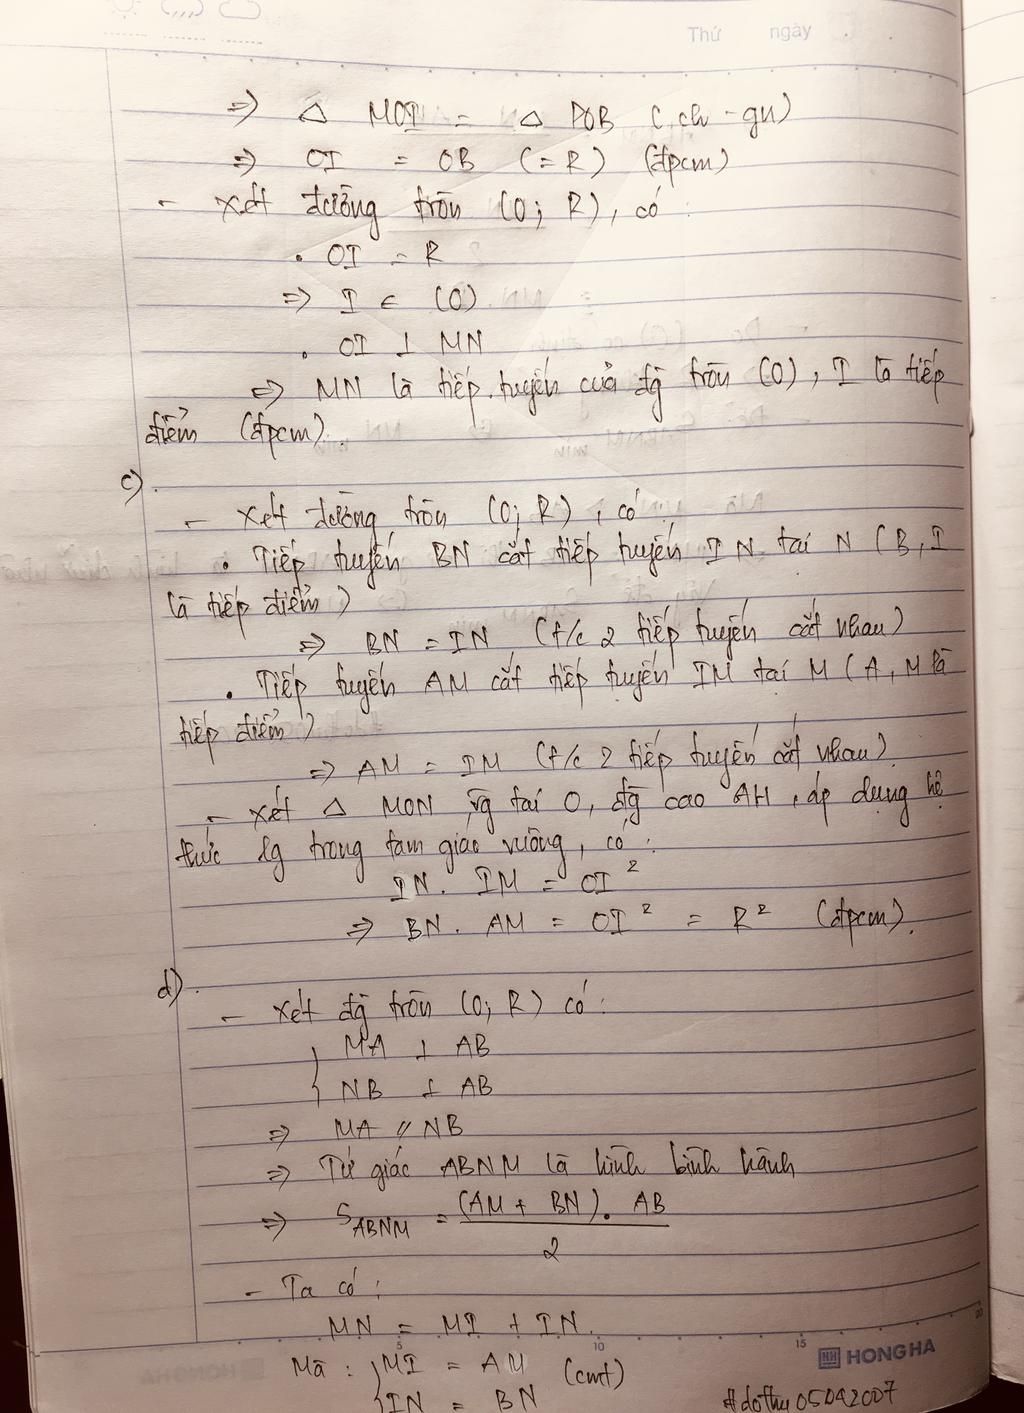 Thứ ngày
=> △ MOI = △ POB (ch - gn)
=> OI = OB (= R) (đpcm)
- Xét đường tròn (O; R), có :
• OI = R
=> I ∈ (O)
• OI ⊥ MN
=> MN là tiếp tuyến của đg tròn (O), I là tiếp
điểm (đpcm).
c)
- Xét đường tròn (O; R), có :
• Tiếp tuyến BN cắt tiếp tuyến IN tại N (B, I
là tiếp điểm)
=> BN = IN (t/c 2 tiếp tuyến cắt nhau)
• Tiếp tuyến AM cắt tiếp tuyến IM tại M (A, M là
tiếp điểm)
=> AM = IM (t/c 2 tiếp tuyến cắt nhau)
- Xét △ MON vg tại O, đg cao AH, áp dụng hệ
thức lg trong tam giác vuông, có :
IN . IM = OI²
=> BN . AM = OI² = R² (đpcm).
d)
- Xét đg tròn (O; R) có :
{ MA ⊥ AB
{ NB ⊥ AB
=> MA // NB
=> Tứ giác ABNM là hình bình hành
=> S_ABNM = (AM + BN) . AB / 2
- Ta có :
MN = MI + IN.
Mà : { MI = AM (cmt)
{ IN = BN
5 10 15 20
HONG HA
#dothu05042007